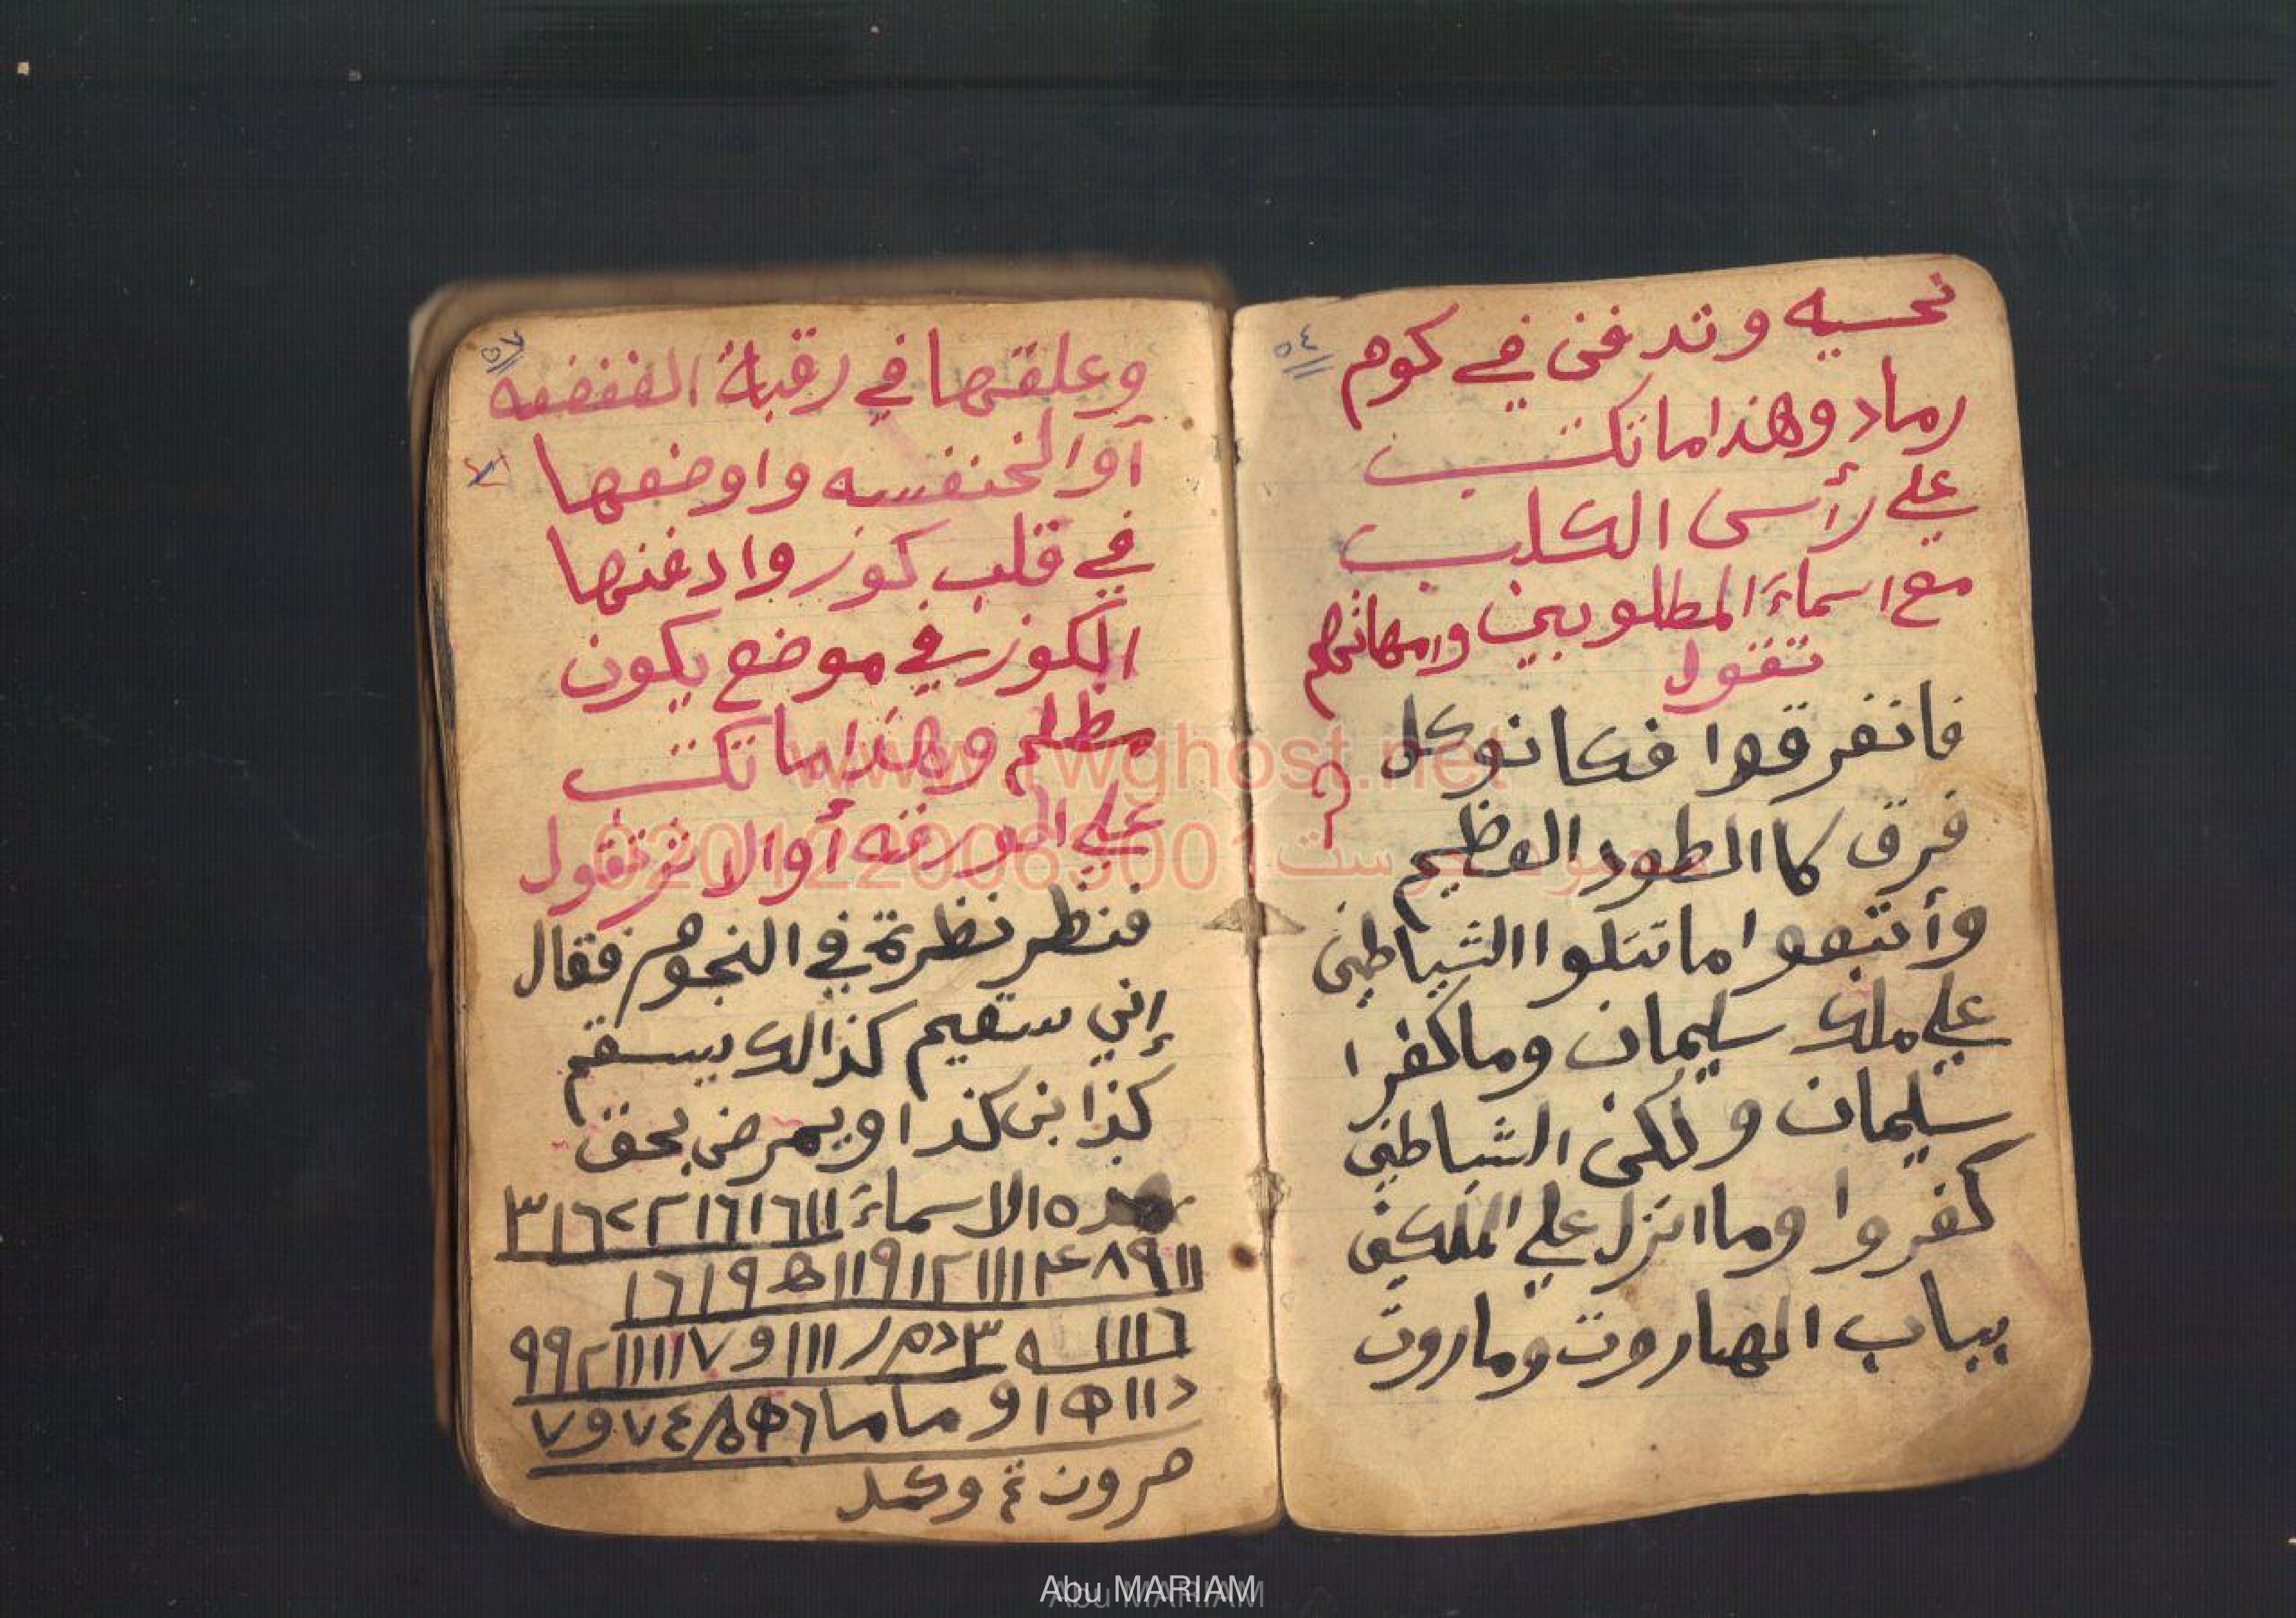 ٥٤
نحسيه وتدفن في كوم
رماد وهذا ما تكتب
علي رأس الكلب
مع اسماء المطلوبين وامهاتهم
تقول
فانفرقوا فكانو كل
فرق كا الطود العظيم
وأتبعوا ما تتلوا الشياطين
علي ملك سليمان وما كفرا
سليمان ولكن الشياطين
كفروا وما انزل علي الملكين
بباب الهاروت وماروت
وعلقها في رقبة الضفضعه
أو الخنفسه واوضعها
في قلب كوز وادفنها
الكوز في موضع يكون
مظلم وهذا ما تكتب
علي الورقه أو الاثر تقول
فنظر نظرة في النجوم فقال
إني سقيم كذالك يسقم
كذا بن كذا ويمرض بحق
هذه الاسماء
حرون تم وكمل
www.rwghost.net
0201222006300
Abu MARIAM